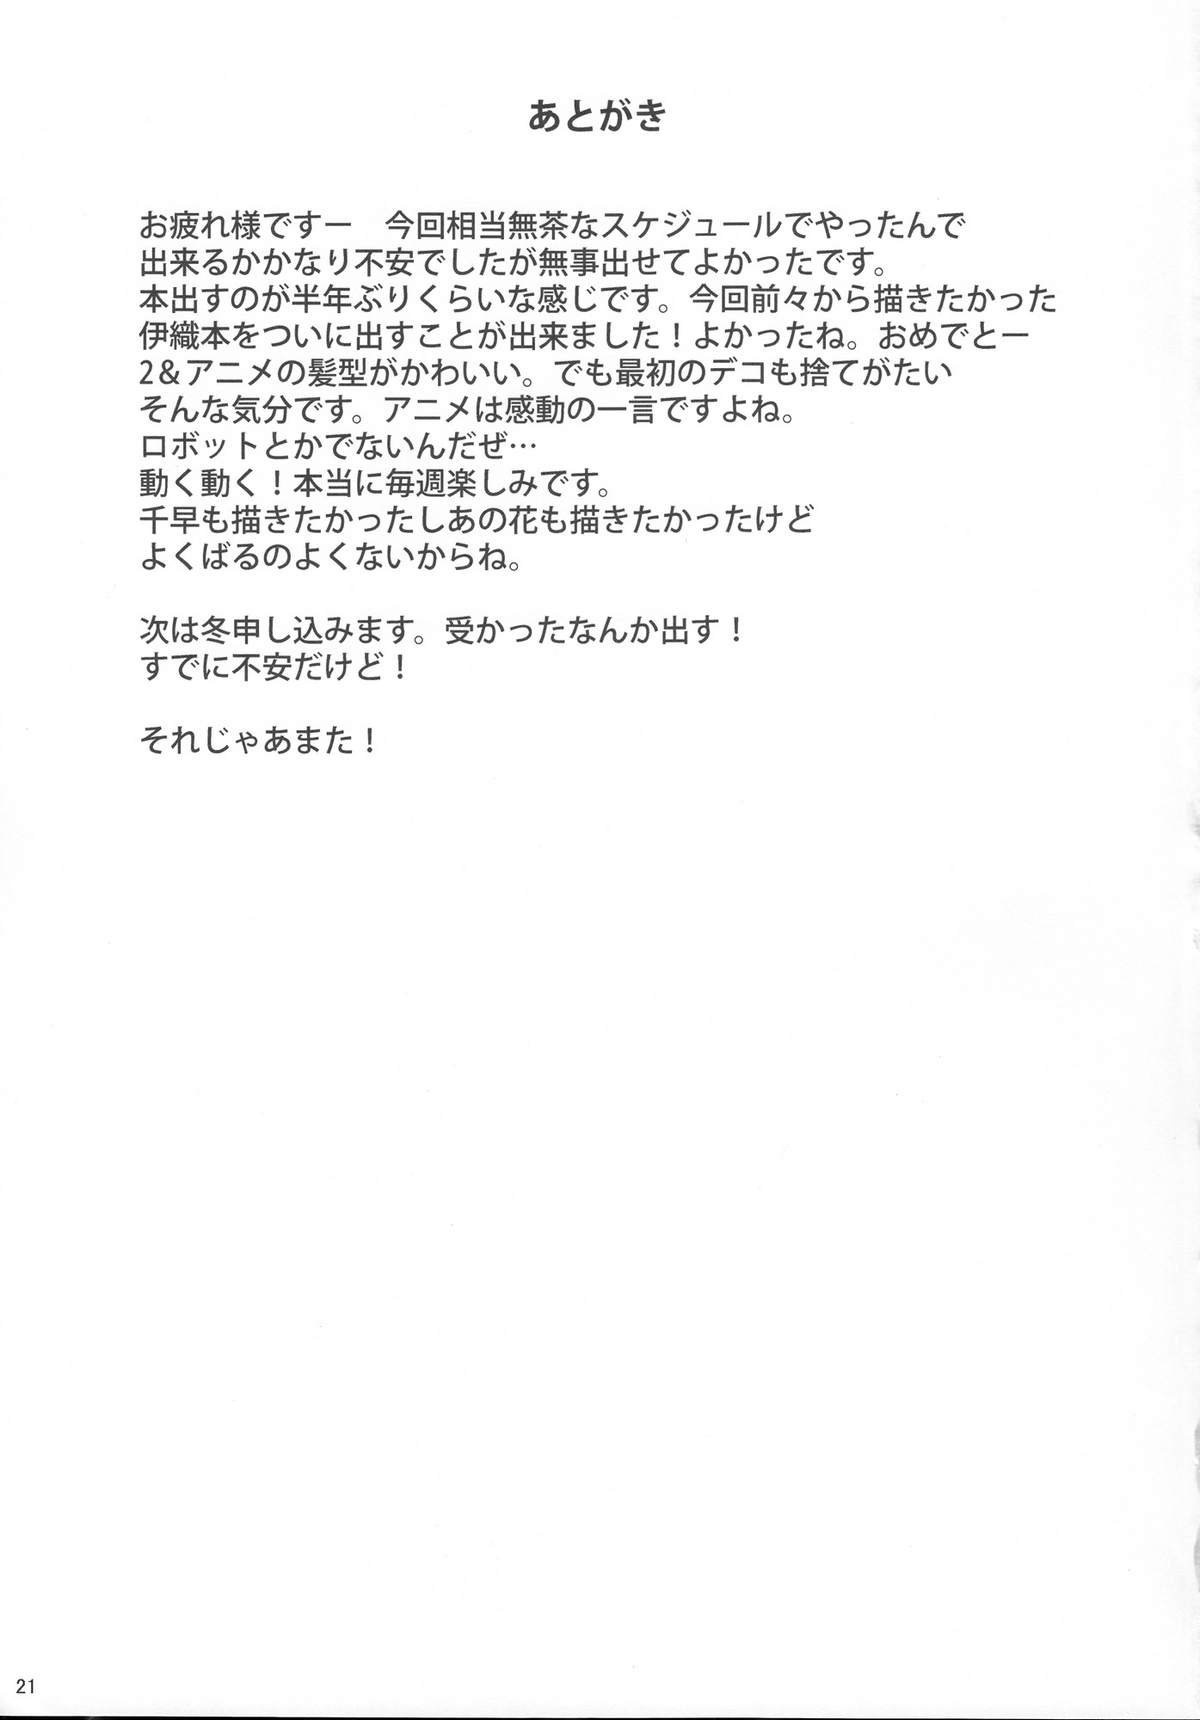 あとがき
お疲れ様ですー　今回相当無茶なスケジュールでやったんで
出来るかかなり不安でしたが無事出せてよかったです。
本出すのが半年ぶりくらいな感じです。今回前々から描きたかった
伊織本をついに出すことが出来ました！よかったね。おめでとー
2＆アニメの髪型がかわいい。でも最初のデコも捨てがたい
そんな気分です。アニメは感動の一言ですよね。
ロボットとかでないんだぜ…
動く動く！本当に毎週楽しみです。
千早も描きたかったしあの花も描きたかったけど
よくばるのよくないからね。
次は冬申し込みます。受かったなんか出す！
すでに不安だけど！
それじゃあまた！
21